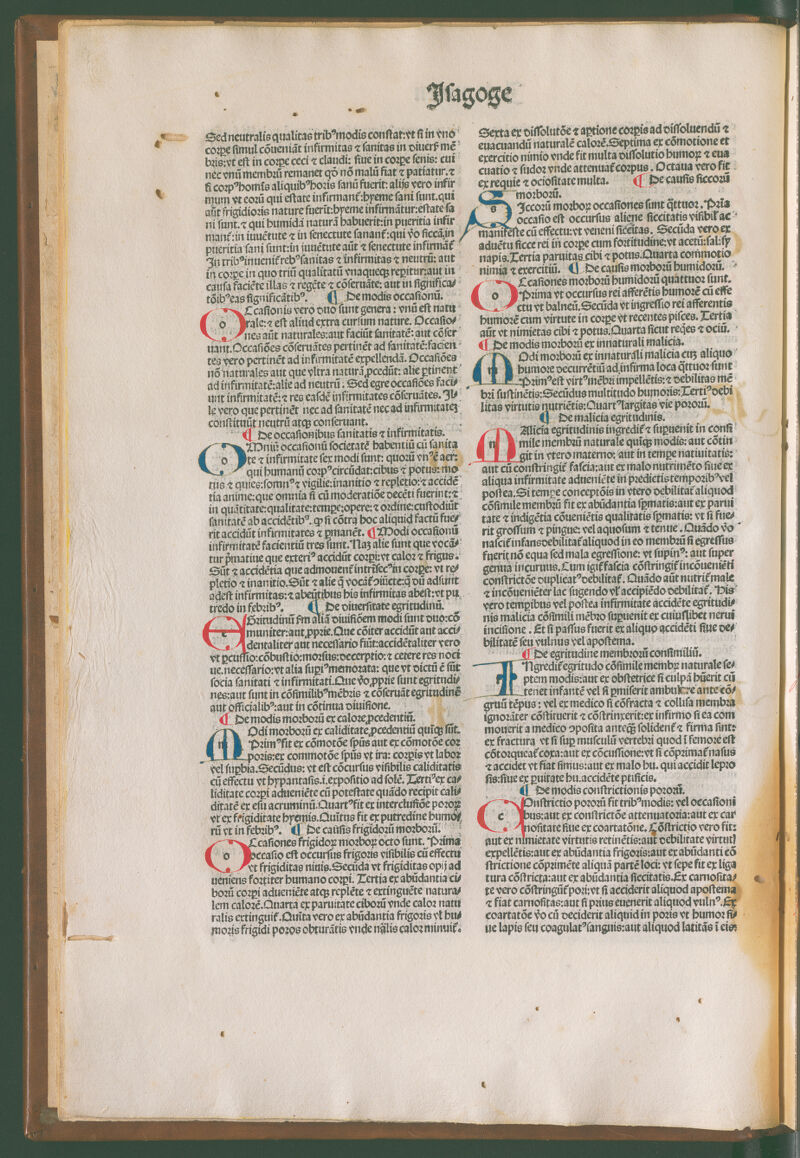 Jsagoge
Sed neutralis qualitas tribꝰ modis constat: vt si in vno
corpe simul cōueniāt infirmitas ⁊ sanitas in diuersꝭ mē
bris: vt est in corpe ceci ⁊ claudi: siue in corpe senis: cui
nec vnū membrū remanet qđ nō malū fiat ⁊ patiatur. ⁊
si corpꝰ homīs aliquibꝰ horis sanū fuerit: alijs vero infir
mum vt eorū qui estate infirmant᷑: hyeme sani sunt. qui
aūt frigidioris nature fuerīt: hyeme infirmātur: estate sa
ni sunt. ⁊ qui humidā naturā habuerit: in pueritia infir
mant᷑: in iuuētute ⁊ in senectute sanant᷑: qui v̄o siccā, in
pueritia sani sunt: in iuuētute aūt ⁊ senectute infirmāt᷑
In tribꝰ inuenit᷑ rebꝰ sanitas ⁊ infirmitas ⁊ neutrū: aut
in corpe in quo triū qualitatū vnaqueqꝫ repitur: aut in
causa faciēte illas ⁊ regēte ⁊ cōseruāte: aut in significa⸗
tōibꝰ eas significātibꝰ. ¶ De modis occasionū.
OCcasiones vero duo sunt genera: vnū est natu
rale: ⁊ est aliud extra cursum nature. Occasio⸗
nes aūt naturales: aut faciūt sanitatē: aut cōser
uant. Occasiōes cōseruātes pertinēt ad sanitatē: facien
tes vero pertinēt ad infirmitatē expellendā. Occasiōes
nō naturales aut que vltra naturā ꝓcedūt: alie ꝑtinent
ad infirmitatē: alie ad neutrū. Sed egre occasiōes faci⸗
unt infirmitatē: ⁊ res easdē infirmitates cōseruātes. Il⸗
le vero que pertinēt nec ad sanitatē nec ad infirmitatez
constituūt neutrū atqꝫ conseruant.
¶ De occasionibus sanitatis ⁊ infirmitatis.
OMniū occasionū societatē habentiū cū sanita
te ⁊ infirmitate sex modi sunt: quorū vnꝰ ē aer:
qui humanū corpꝰ circūdat: cibus ⁊ potus: mo
tus ⁊ quies: somnꝰ ⁊ vigilie: inanitio ⁊ repletio: ⁊ accidē
tia anime: que omnia si cū moderatiōe decēti fuerint: ⁊
in quātitate: qualitate: tempe: opere: ⁊ ordine: custodiūt
sanitatē ab accidētibꝰ. qꝫ si cōtra hoc aliquid factū fue⸗
rit accidūt infirmitates ⁊ ꝑmanēt. ¶ Modi occasionū
infirmitatē facientiū tres sunt. Naz alie sunt que vocā⸗
tur p̄matine que exteriꝰ accidūt corpi: vt calor ⁊ frigus.
Sūt ⁊ accidētia que admouent᷑ intrīsecꝰ in corpe: vt re⸗
pletio ⁊ inanitio. Sūt ⁊ alie q̄ vocāt᷑ ꝯiūcte: q̄ dū adsunt
adest infirmitas: ⁊ abeūtibus his infirmitas abest: vt pu
tredo in febribꝰ. ¶ De diuersitate egritudinū.
EGritudinū s̄m aliā diuisiōem modi sunt duo: cō
muniter: aut, ꝓprie. Que cōiter accidūt aut acci⸗
dentaliter aut necessario fiūt: accidētaliter vero
vt ꝑcussio: cōbustio: morsus: deceptio: ⁊ cetere res noci
ue. necessario: vt alia supiꝰ memorata: que vt dictū ē sūt
socia sanitati ⁊ infirmitati. Que v̄o, ꝓprie sunt egritudi⸗
nes: aut sunt in cōsimilibꝰ mēbris ⁊ cōseruāt egritudinē
aut officialibꝰ: aut in cōtinua diuisione.
¶ De modis morborū ex calore ꝓcedentiū.
MOdi morborū ex caliditate, ꝓcedentiū quīqꝫ sūt.
Primꝰ fit ex cōmotōe spūs aut ex cōmotōe cor
poris: ex commotōe spūs vt ira: corpis vt labor
vel supbia. Secūdus: vt est cōcursus visibilis caliditatis
cū effectu vt hypantasis. i. expositio ad solē. Tertiꝰ ex ca⸗
liditate corpi adueniēte cū potestate quādo recipit cali⸗
ditatē ex esu acruminū. Quartꝰ fit ex interclusiōe pororꝫ
vt ex frigiditate hyemis. Quītus fit ex putredine humo⸗
rū vt in febribꝰ. ¶ De causis frigidorū morborū.
OCcasiones frigidorꝫ morborꝫ octo sunt. Prima
occasio est occursus frigoris visibilis cū effectu
vt frigiditas niuis. Secūda vt frigiditas opij ad
ueniens fortiter humano corpi. Tertia ex abūdantia ci⸗
borū corpi adueniēte atqꝫ replēte ⁊ extinguēte natura⸗
lem calorē. Quarta ex paruitate ciborū vnde calor natu
ralis extinguit᷑. Quīta vero ex abūdantia frigoris vt hu⸗
moris frigidi poros obturātis vnde nālis calor minuit᷑.
Sexta ex dissolutōe ⁊ aptione corpis ad dissoluendū ⁊
euacuandū naturalē calorē. Septima ex cōmotione et
exercitio nimio vnde fit multa dissolutio humorꝫ ⁊ eua
cuatio ⁊ sudor vnde attenuat᷑ corpus. Octaua vero fit
ex requie ⁊ ociositate multa. ¶ De causis siccorū
morborū.
SIccorū morborꝫ occasiones sunt q̄ttuor. Prīa
occasio est occursus aliene siccitatis visibilꝭ ac
manifeste cū effectu: vt veneni siccitas. Secūda vero ex
aduētu sicce rei in corpe cum fortitudine: vt acetū: sal: sy
napis. Tertia paruitas cibi ⁊ potus. Quarta commotio
nimia ⁊ exercitiū. ¶ De causis morborū humidorū.
OCcasiones morborū humidorū quattuor sunt.
Prima vt occursus rei afferētis humorē cū effe
ctu vt balneū. Secūda vt ingressio rei afferentis
humorē cum virtute in corpe vt recentes pisces. Tertia
aūt vt nimietas cibi ⁊ potus. Quarta sicut reqes ⁊ ociū.
¶ De modis morborū ex innaturali malicia.
MOdi morborū ex innaturali malicia cuiꝫ aliquo
humore decurrētiū ad infirma loca q̄ttuor sunt
Primꝰ est virtꝰ mēbri impellētis: ⁊ debilitas mē
bri sustinētis: Secūdus multitudo humoris: Tertiꝰ debi
litas virtutis nutriētis: Quartꝰ largitas vie pororū.
¶ De malicia egritudinis.
MAlicia egritudinis ingredit᷑ ⁊ supuenit in consi
mile membrū naturale quīqꝫ modis: aut cōtin
git in vtero materno: aut in tempe natiuitatis:
aut cū constringit᷑ fascia: aut ex malo nutrimēto siue ex
aliqua infirmitate adueniēte in predictis temporibꝰ vel
postea. Si tempe conceptōis in vtero debilitat᷑ aliquod
cōsimile membrū fit ex abūdantia spmatis: aut ex parui
tate ⁊ indigētia cōuenietis qualitatis spmatis: vt si fue⸗
rit grossum ⁊ pingue: vel aquosum ⁊ tenue. Quādo v̄o
nascit᷑ infans debilitat᷑ aliquod in eo membrū si egressus
fuerit nō equa sed mala egressione: vt supinꝰ: aut super
genua incuruus. Cum igit᷑ fascia cōstringit᷑ incōueniēti
constrictōe duplicatꝰ debilitat᷑. Quādo aūt nutrit᷑ male
⁊ incōueniēter lac sugendo vel accipiēdo debilitat᷑. His
vero tempibus vel postea infirmitate accidēte egritudi⸗
nis malicia cōsimili mēbro supuenit ex cuiuslibet nerui
incisione. Et si passus fuerit ex aliquo accidēti siue de⸗
bilitatē seu vulnus vel apostema.
¶ De egritudine membrorū consimiliū.
INgredit᷑ egritudo cōsimile membrꝫ naturale se⸗
ptem modis: aut ex obstetrice si culpā hūerit cū
tenet infantē vel si pmiserit ambulare ante cō⸗
gruū tēpus: vel ex medico si cōfracta ⁊ collisa membra
ignorāter cōstituerit ⁊ cōstrinxerit: ex infirmo si ea com
mouerit a medico ꝯposita anteqꝫ solident᷑ ⁊ firma sint:
ex fractura vt si sup musculū vertebri quod ī femore est
cōtorqueat᷑ coxa: aut ex cōcussione: vt si cōprimat᷑ nasus
⁊ accidet vt fiat simus: aut ex malo hu. qui accidit lepro
sis: siue ex puitate hu. accidēte ptisicis.
¶ De modis constrictionis pororū.
COnstrictio pororū fit tribꝰ modis: vel occasioni
bus: aut ex constrictōe attenuatoria: aut ex car
nositate siue ex coartatōne. Cōstrictio vero fit:
aut ex nimietate virtutis retinētis: aut debilitate virtutꝭ
expellētis: aut ex abūdantia frigoris: aut ex abūdanti cō
strictione cōprimēte aliquā partē loci: vt sepe fit ex liga
tura cōstricta: aut ex abūdantia siccitatis. Ex carnosita⸗
te vero cōstringūt᷑ pori: vt si acciderit aliquod apostema
⁊ fiat carnositas: aut si prius euenerit aliquod vulnꝰ. Ex
coartatōe v̄o cū deciderit aliquid in poris vt humor si⸗
ue lapis seu coagulatꝰ sanguis: aut aliquod latitās ī eis: